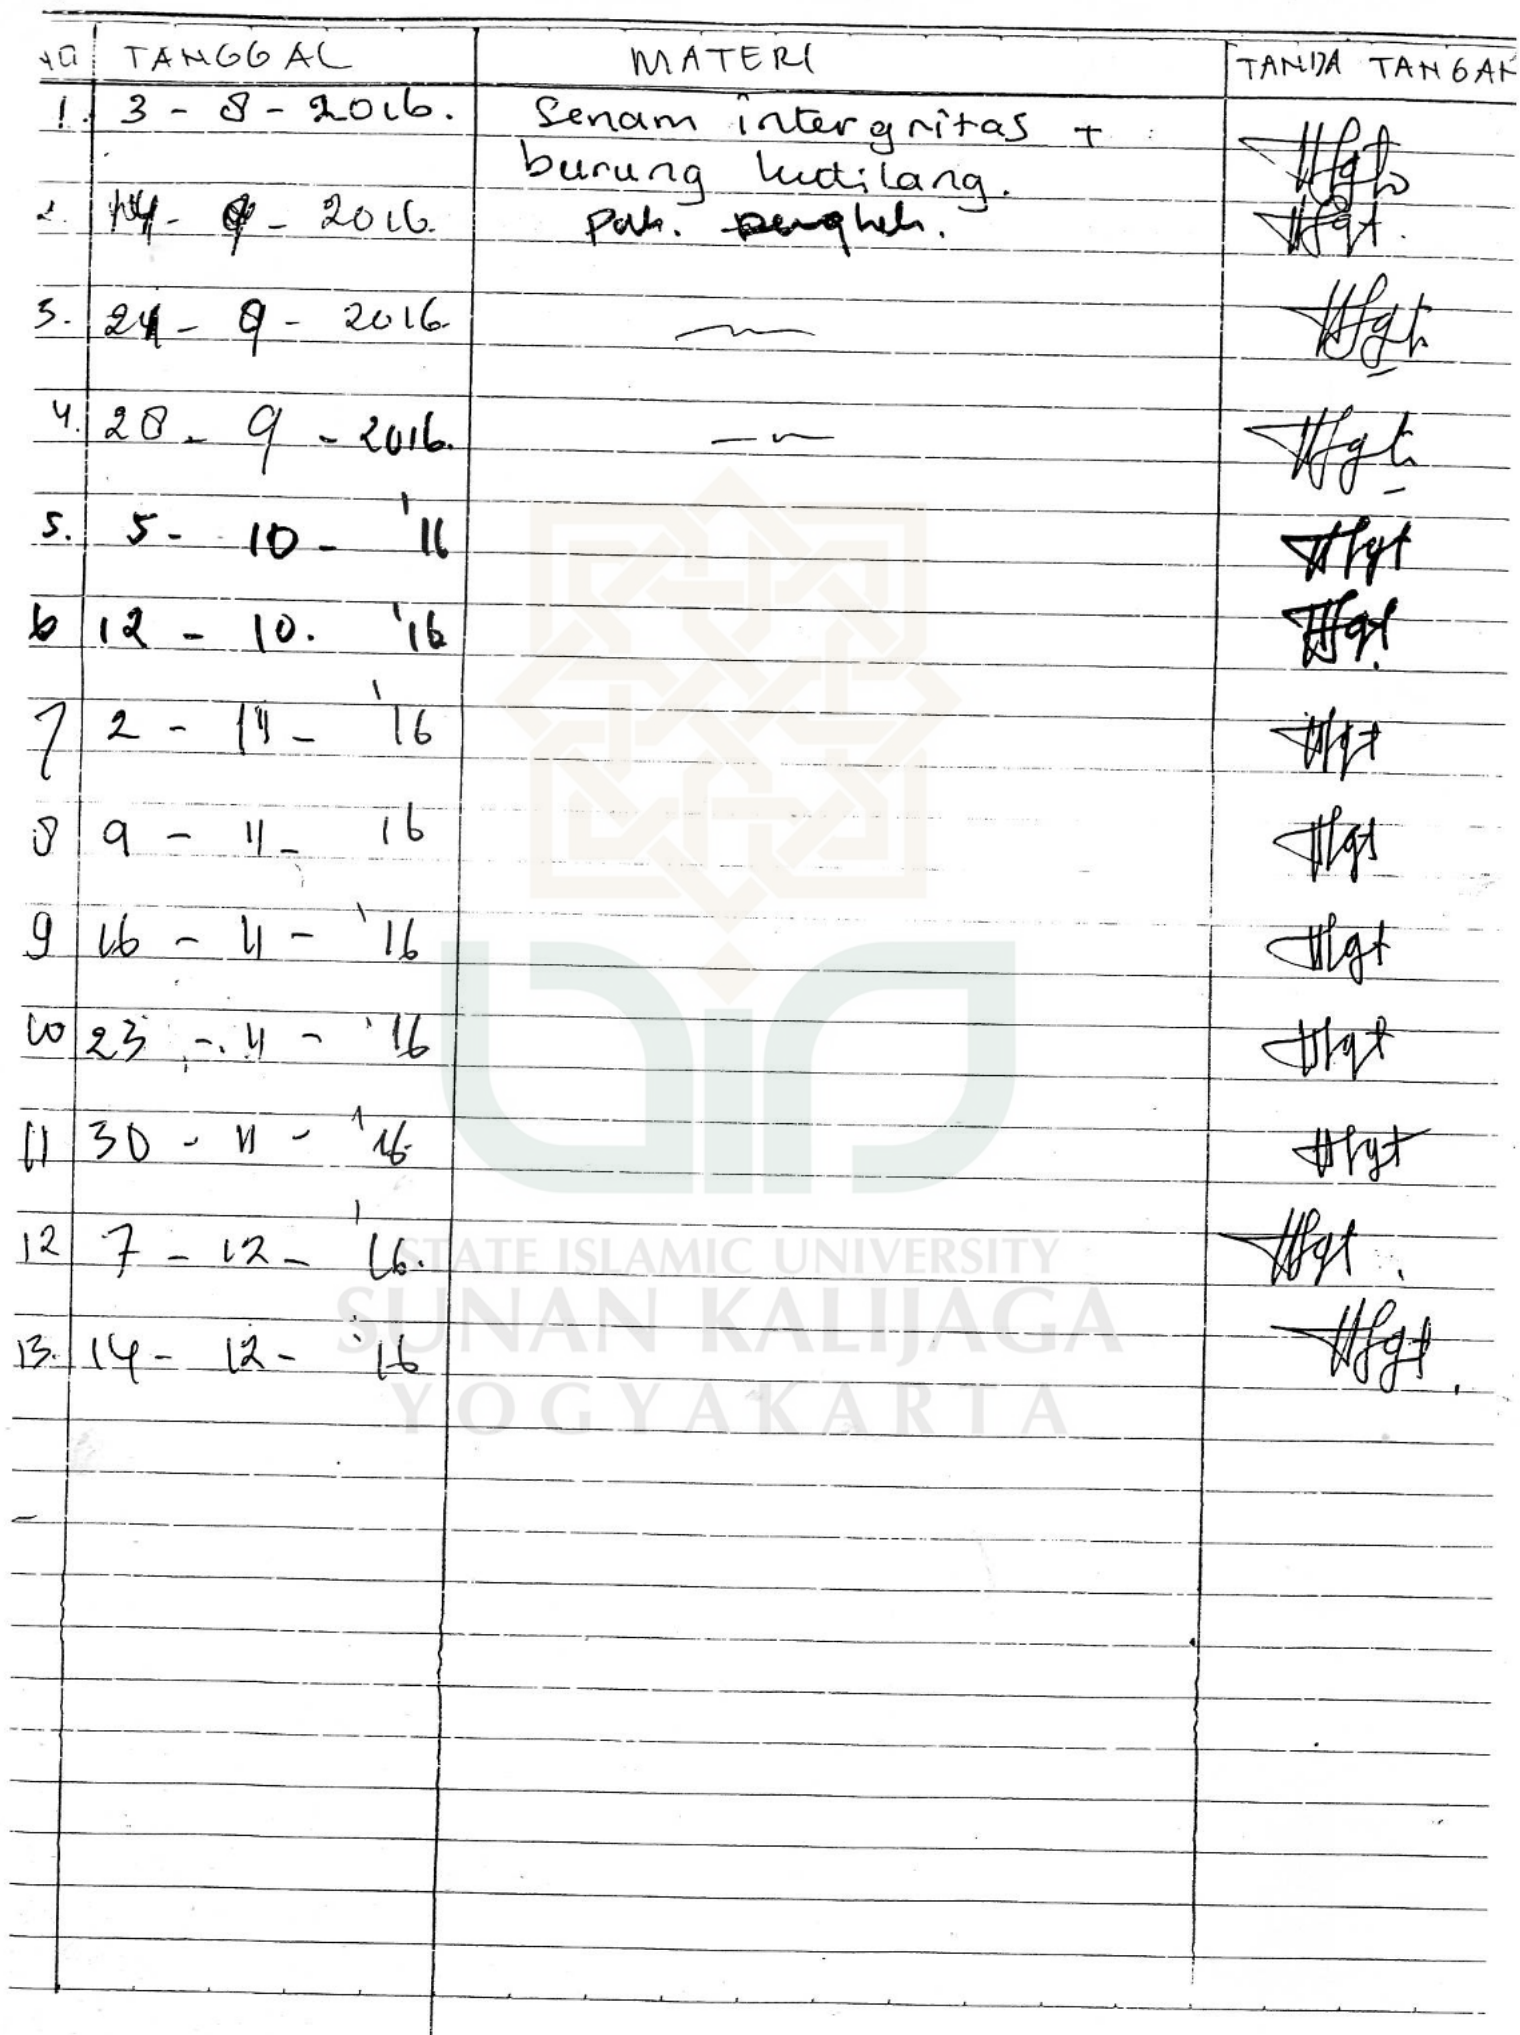 NO TANGGAL MATERI TANDA TANGAN
1. 3 - 8 - 2016. Senam intergritas +
burung kutilang.
2. 14 - 9 - 2016. Pak.
3. 24 - 9 - 2016.
4. 28 - 9 - 2016.
5. 5 - 10 - '16
6 12 - 10. '16
7 2 - 11 - '16
8 9 - 11 - 16
9 16 - 11 - '16
10 23 - 11 - '16
11 30 - 11 - '16
12 7 - 12 - '16.
13. 14 - 12 - '16
STATE ISLAMIC UNIVERSITY
SUNAN KALIJAGA
YOGYAKARTA